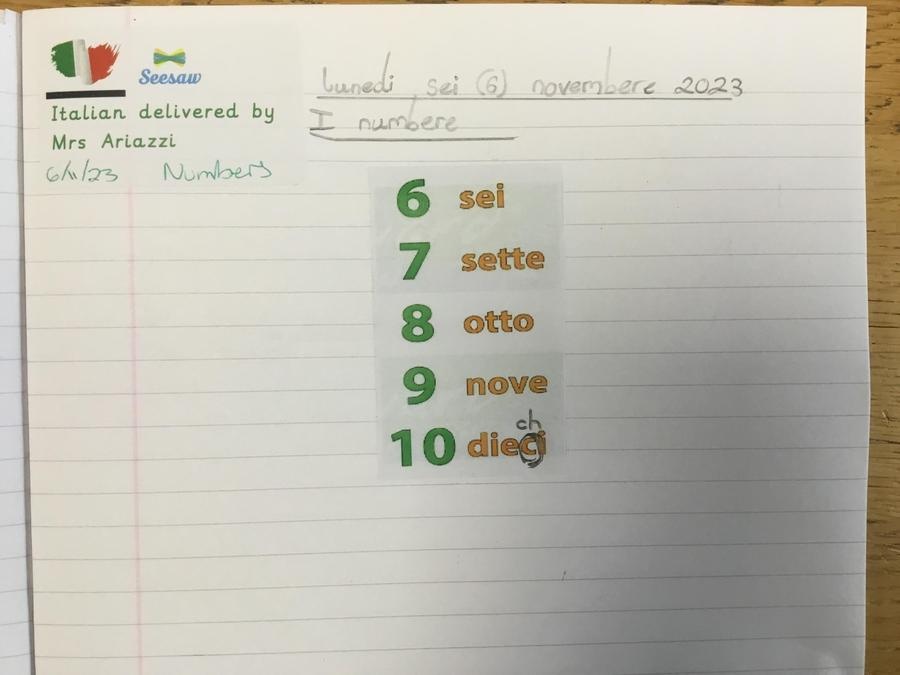 Seesaw
Italian delivered by
Mrs Ariazzi
6/11/23 Numbers
lunedi, sei (6) novembere 2023
I numbere
6 sei
7 sette
8 otto
9 nove
ch
10 dieci